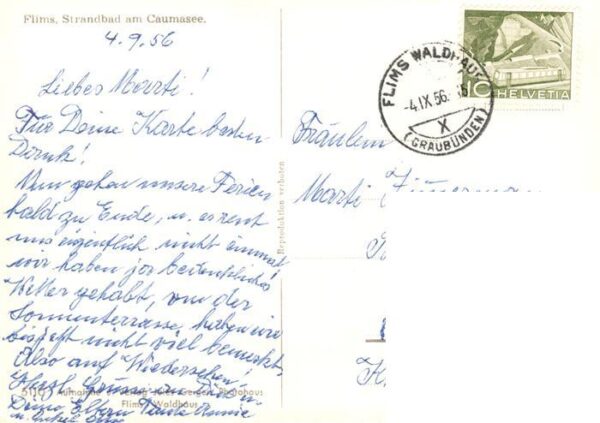 Flims, Strandbad am Caumasee.
4.9.56
Liebes Marti!
Für Deine Karte besten
Dank!
Nun gehen unsere Ferien
bald zu Ende, u. es reut
uns eigentlich nicht einmal
wir haben ja bedenkliches
Wetter gehabt, von der
Sonnenterrasse haben wir
bis jetzt nicht viel bemerkt!
Also auf Wiedersehen!
Herzl.
Deine Eltern Tante Annie
Verlag Jules Geiger, Photohaus
Flims Waldhaus
Reproduktion verboten
FLIMS WALDHAUS
-4.IX 56.
X
(GRAUBÜNDEN)
HELVETIA
Fräulein
Marti